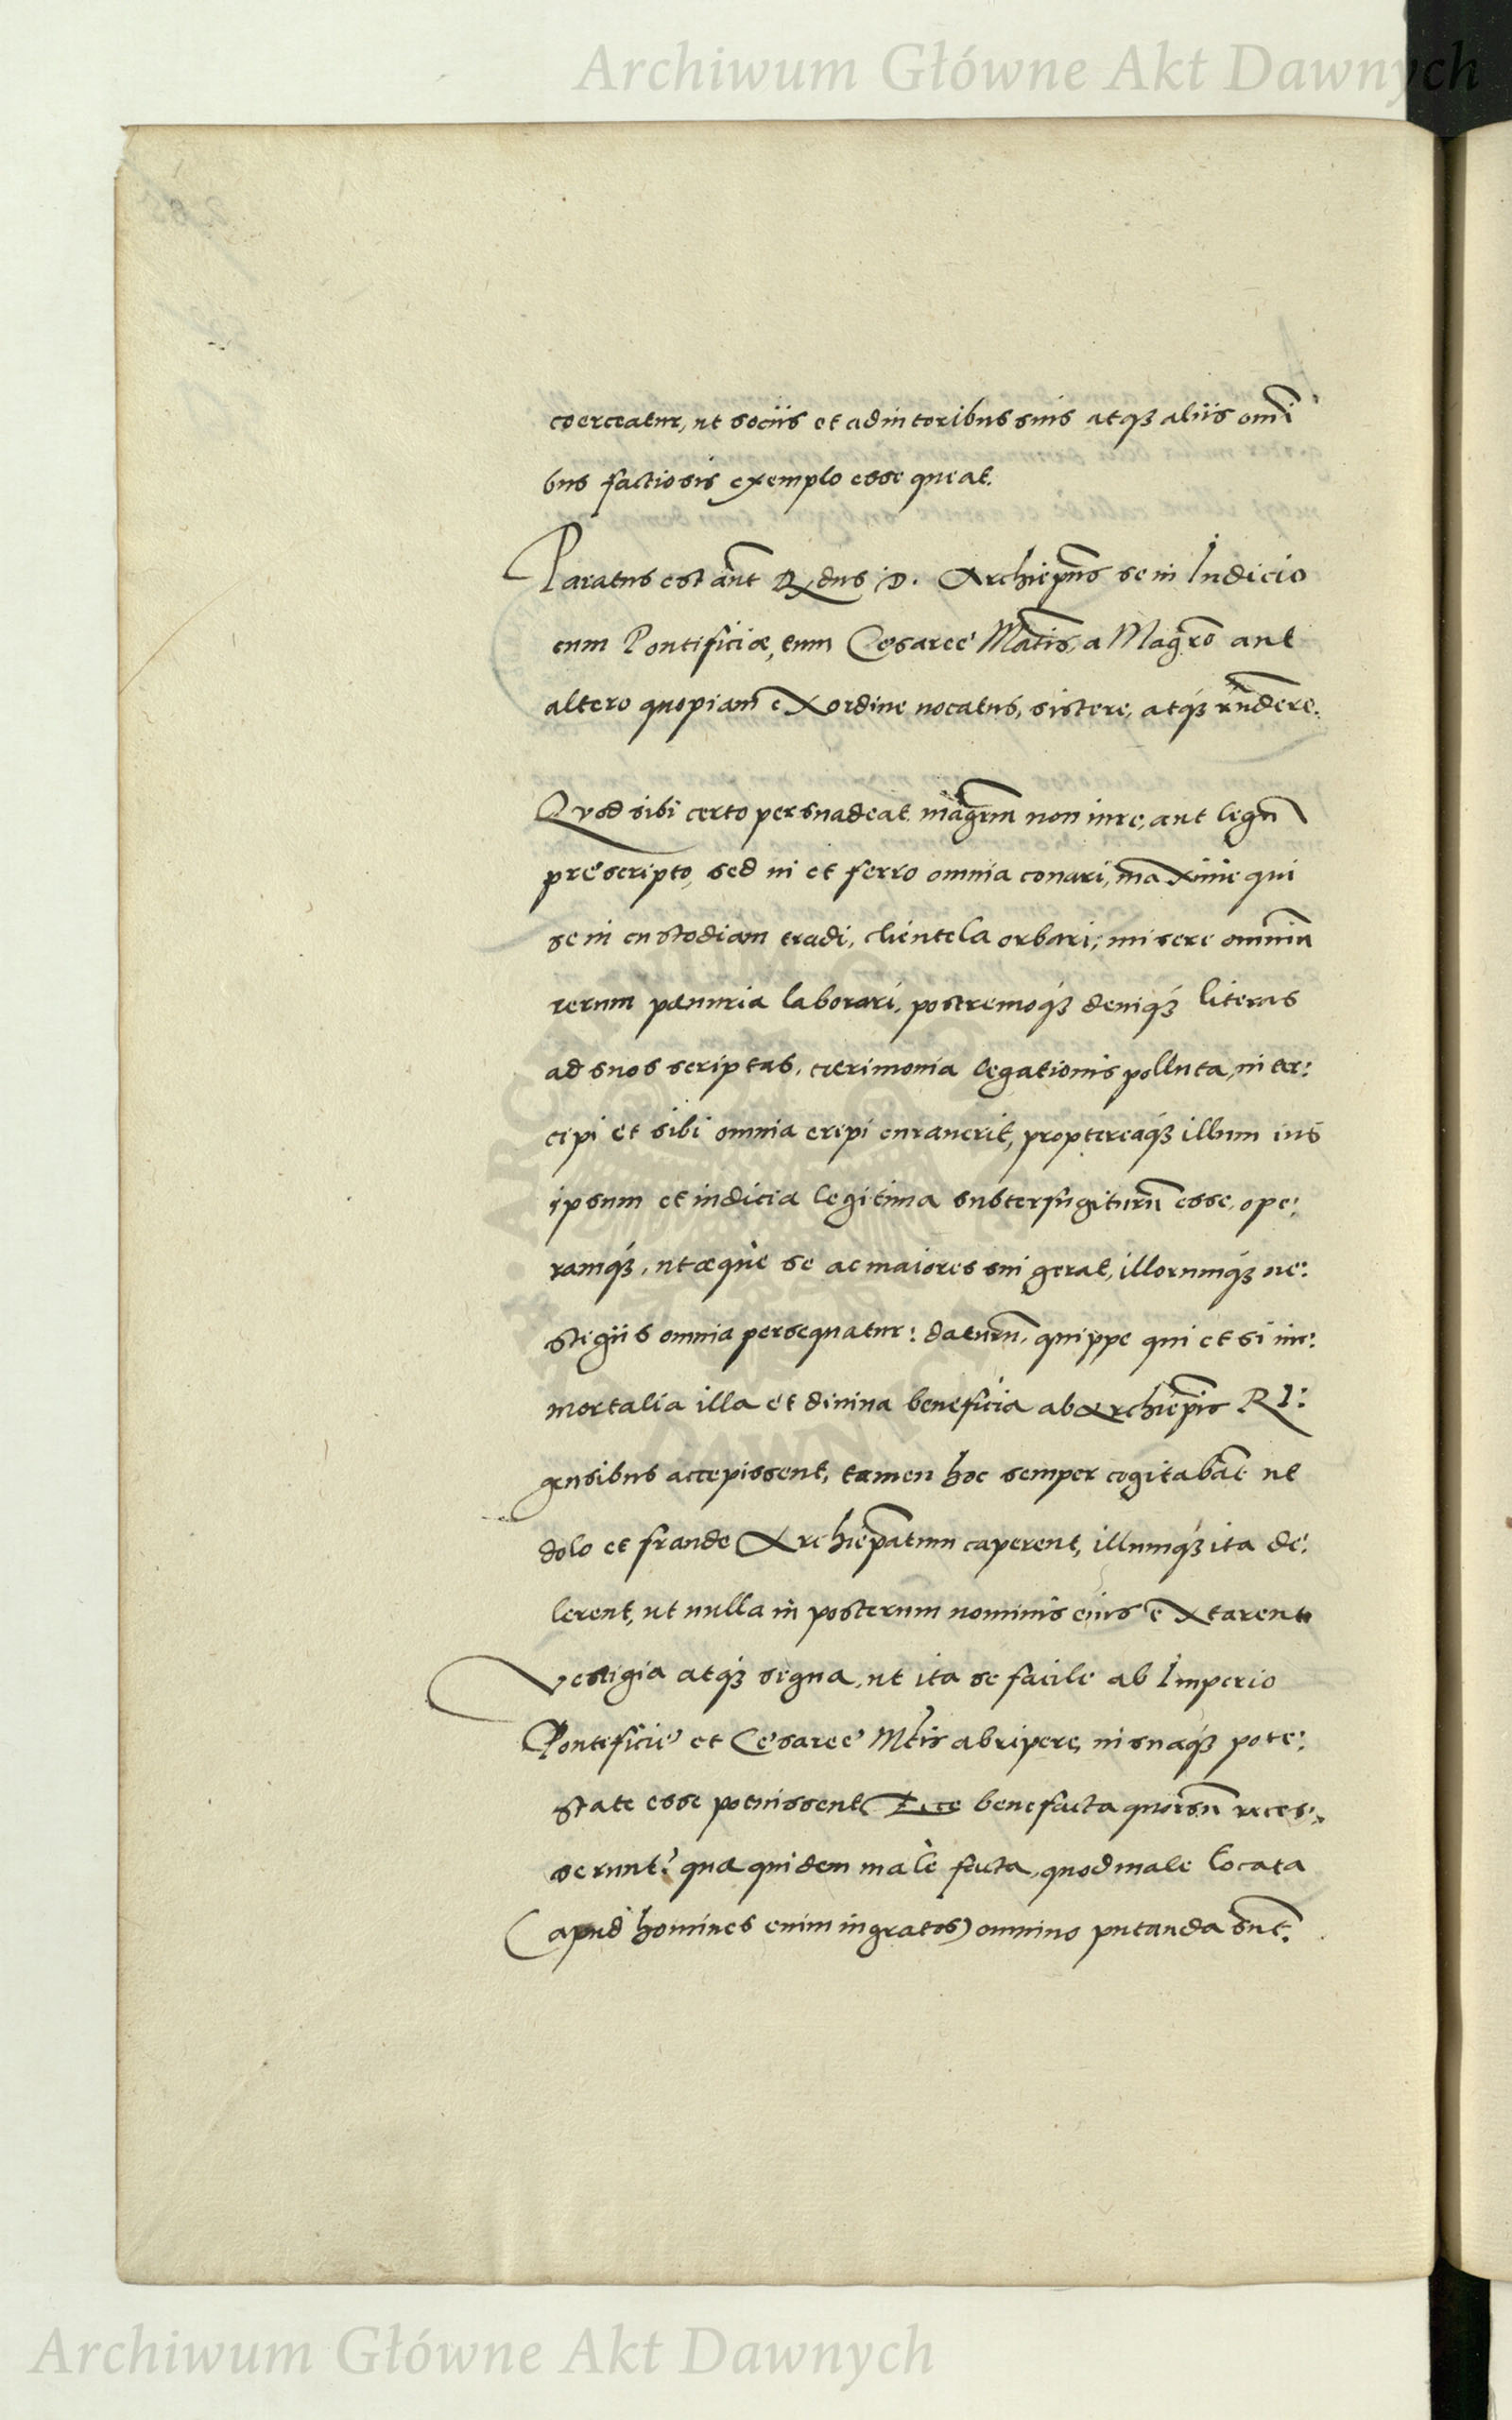 Archiwum Główne Akt Dawnych
coerceatur, ut sociis et adiutoribus suis atq₃ aliis omĩ
bus factiosis exemplo esse queat.
Paratus est aũt Rdus D. Archiep̃us se in Iudicio
cum Pontificiæ, tum Cęsareę Mãtis, a Magr̃o aut
altero quopiam ex ordine vocatus, sistere, atq₃ rñdere.
Quod sibi certo persuadeat magr̃m non iure, aut legũ
pręscripto, sed vi et ferro omnia conari, maxime qui
se in custodiam tradi, clientela orbari, misere omniũ
rerum pænuria laborari, postremoq₃ deniq₃ literas
ad suos scriptas, cęrimonia legationis polluta, inter:
cipi et sibi omnia eripi curaverit, proptereaq₃ illum ius
ipsum et iudicia legitima subterfugiturũ esse, ope:
ramq₃, ut æque se ac maiores sui gerat, illorumq₃ ve:
stigiis omnia persequatur: daturũ, quippe qui et si im:
mortalia illa et divina beneficia ab Archiep̃is RI:
gensibus accepissent, tamen hoc semper cogitabãt ut
dolo et fraude Archiep̃atum caperent, illumq₃ ita de:
lerent, ut nulla in posterum nominis eius extarent
Vestigia atq₃ signa, ut ita se facile ab Imperio
Pontificię et Cęsareę Mtis abripere, in suaq₃ pote:
state esse potuissent Ecce benefacta quorsũ reces:
serunt? quæ quidem male facta, quod male locata
(apud homines enim ingratos) omnino putanda sũt.
ARCHIWUM
DAWNYCH
Archiwum Główne Akt Dawnych